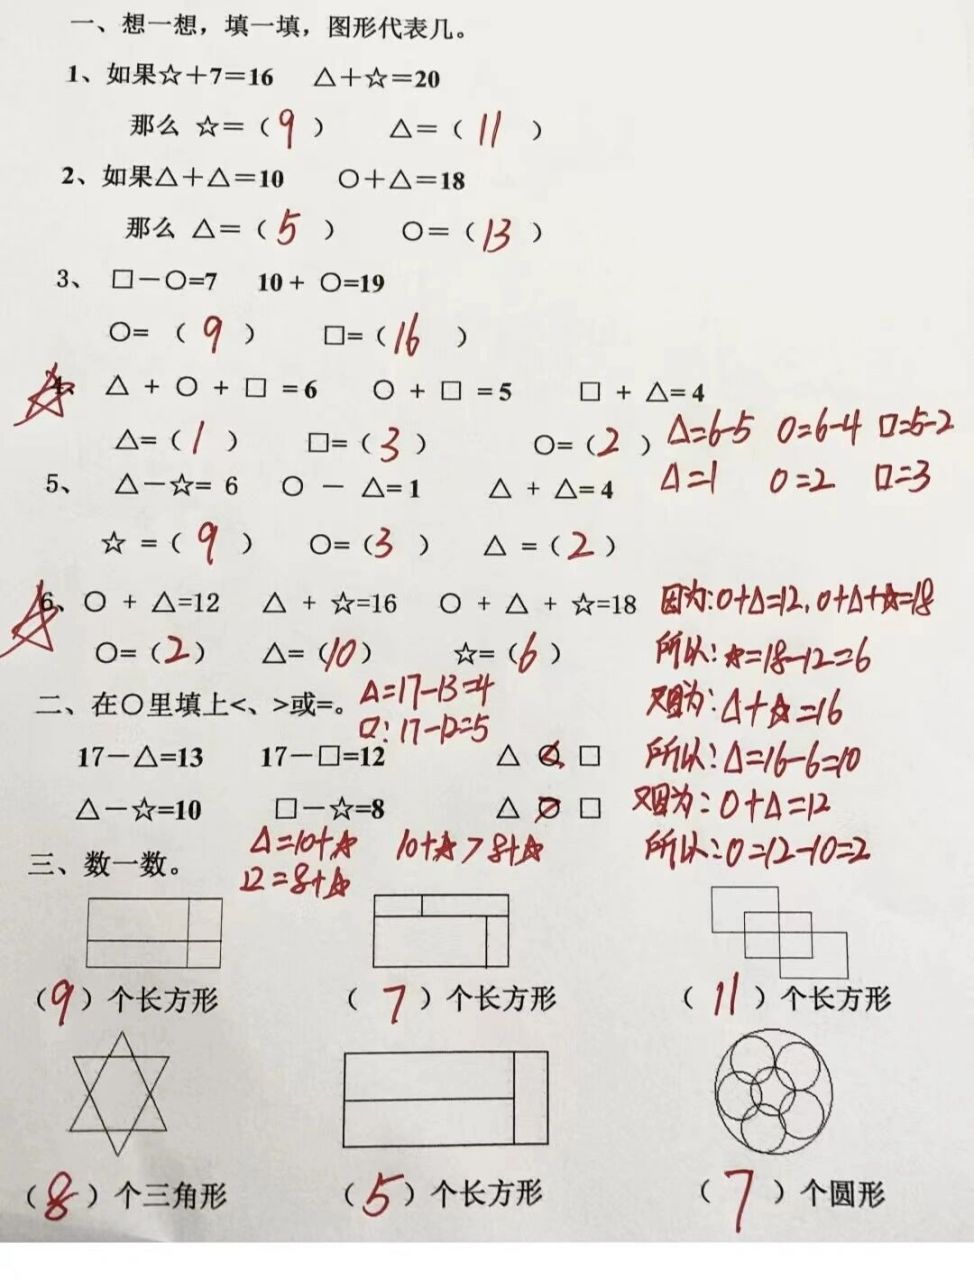 一、想一想，填一填，图形代表几。
1、如果☆＋7＝16 △＋☆＝20
那么 ☆＝（9） △＝（11）
2、如果△＋△＝10 ○＋△＝18
那么 △＝（5） ○＝（13）
3、 □－○=7 10 + ○=19
○= （9） □=（16）
4、 △ + ○ + □ = 6 ○ + □ = 5 □ + △= 4
△=（1） □=（3） ○=（2） △=6-5 ○=6-4 □=5-2
△=1 ○=2 □=3
5、 △－☆= 6 ○ － △= 1 △ + △= 4
☆ =（9） ○=（3） △ =（2）
6、○ + △=12 △ + ☆=16 ○ + △ + ☆=18 因为:○+△=12,○+△+☆=18
○=（2） △=（10） ☆=（6） 所以:☆=18-12=6
二、在○里填上<、>或=。 △=17-13=4 又因为:△+☆=16
□:17-12=5
17－△=13 17－□=12 △ < □ 所以:△=16-6=10
△－☆=10 □－☆=8 △ > □ 又因为:○+△=12
△=10+☆ 10+☆>8+☆ 所以:○=12-10=2
三、数一数。 12=8+☆
（9）个长方形 （7）个长方形 （11）个长方形
（8）个三角形 （5）个长方形 （7）个圆形